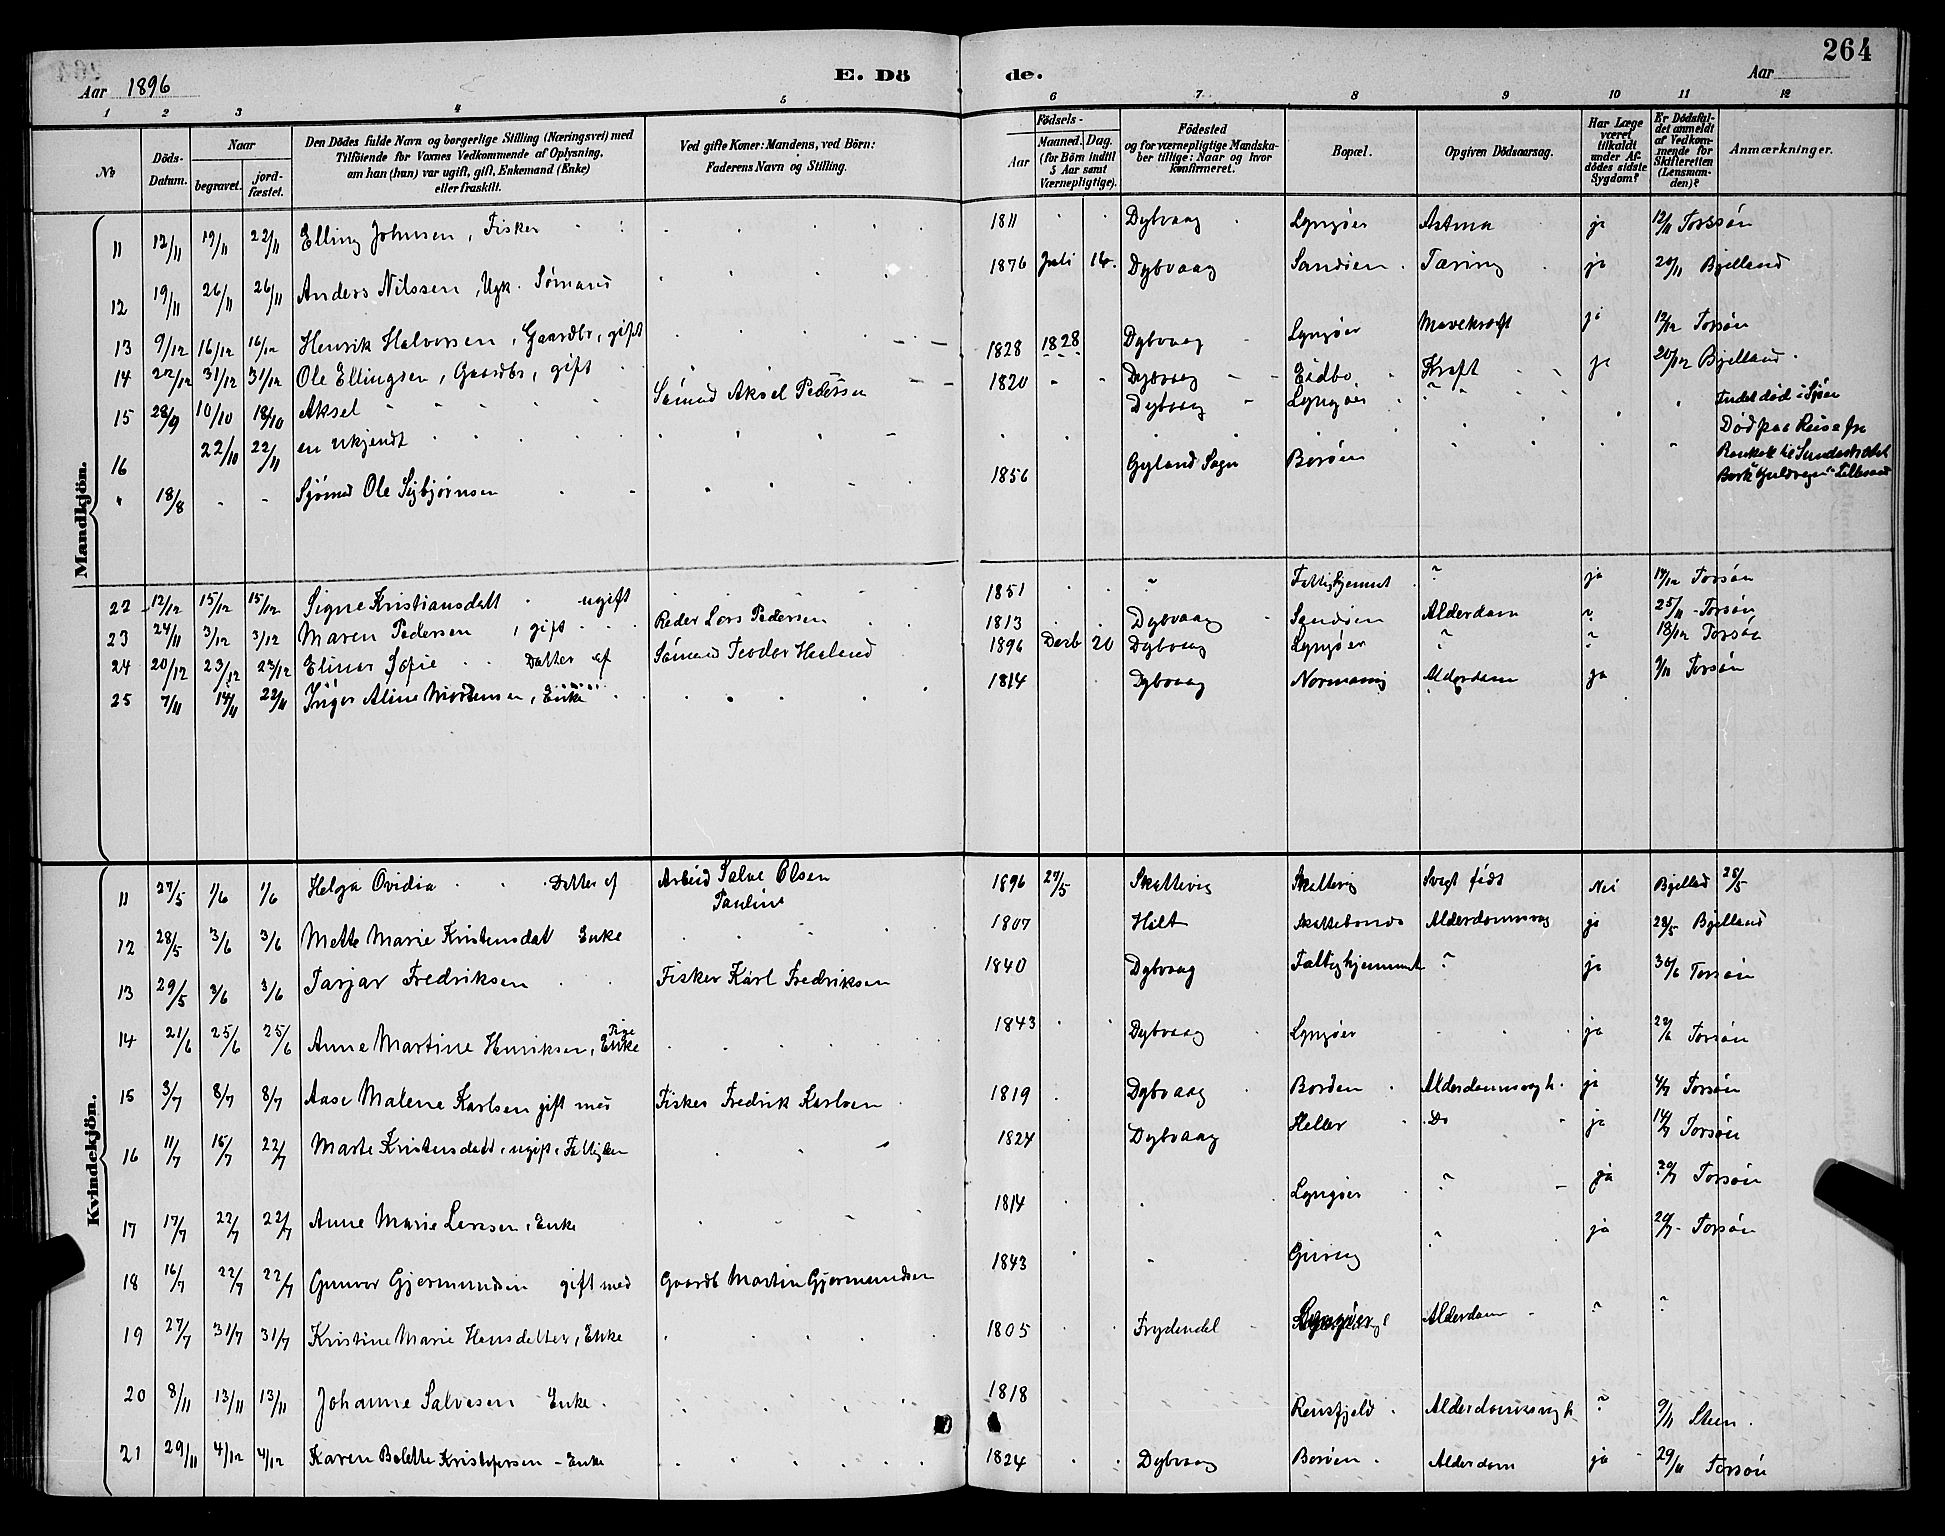 264
Aar 1896 E. Dö de. Aar
1 2 3 4 5 6 7 8 9 10 11 12
No
Döds-Datum.
Naar
begravet.
jordfæstet.
Den Dödes fulde Navn og borgerlige Stilling (Næringsvei) med
Tilföiende for Voxnes Vedkommende af Oplysning,
om han (hun) var ugift, gift, Enkemand (Enke)
eller fraskilt.
Ved gifte Koner: Mandens, ved Börn:
Faderens Navn og Stilling.
Födsels-
Aar
Maaned. Dag.
(for Börn indtil
5 Aar samt
Værnepligtige).
Födested
og for værnepligtige Mandska-
ber tillige: Naar og hvor
konfirmeret.
Bopæl.
Opgiven Dödsaarsag.
Har Læge
været
tilkaldt
under Af-
dödes sidste
Sygdom?
Er Dödsfal-
det anmeldt
af Vedkom-
mende for
Skifteretten
(Lensman-
den)?
Anmærkninger.
Mandkjön.
11 12/11 19/11 22/11 Elling Johnsen, Fisker 1811 Dybvaag Lyngøer Astma ja 12/11 Torssøn
12 19/11 26/11 26/11 Anders Nilssen, Ugk. Sømand 1876 Juli 14. Dybvaag Sandøen Tæring ja 20/11 Bjelland
13 9/12 16/12 16/12 Henrik Halvorsen, Gaardbr, gift 1828 1828 Dybvaag Lyngøer Mavekræft ja 12/12 Torsøn
14 22/12 31/12 31/12 Ole Ellingsen, Gaardbr, gift 1820 Dybvaag Eidbo Kræft ja 20/12 Bjelland
15 28/9 10/10 18/10 Aksel Sømand Aksel Pedersen Dybvaag Lyngøer Fundet død i Sjøen
16 22/10 22/11 en ukjendt Død paa Reise fra
" 18/8 - - Sjømd Ole Sigbjørnsen 1856 Gyland Sogn Borøen til Sundsvalv
Bark Lillesand
22 12/12 15/12 15/12 Signe Kristiansdatt ugift 1851 ? Fattighjemmet ? ja 14/12 Torsøn
23 24/11 3/12 3/12 Maren Pedersen, gift Reder Lars Pedersen 1813 Dybvaag Sandøen Alderdom ? 25/11 Torsøn
24 20/12 23/12 23/12 Elinor Sofie Datter af Sømand Teodor Haaland 1896 Decb 20 Dybvaag Lyngøer ? ? 18/12 Torsøn
25 7/11 14/11 22/11 Inger Aline Mortensen, Enke 1814 Dybvaag Normanvig Alderdom ja 9/11 Torsøn
Kvindekjön.
11 27/5 1/6 1/6 Helga Ovidia Datter af Arbeid Salve Olsen 1896 27/5 Skattevig Skattevig Svagt født Nei Bjelland 28/5
Pauline
12 28/5 3/6 3/6 Mette Marie Kristensdatt Enke 1807 Holt Alderdomssvag ja 28/5 Bjelland
13 29/5 3/6 3/6 Tarjar Fredriksen Fisker Karl Fredriksen 1840 Dybvaag Fattighjemmet ? ja 30/6 Torsøn
14 21/6 25/6 25/6 Anne Martine Henriksen, Pige Enke 1843 Dybvaag Lyngøer ja 22/6 Torsøn
15 3/7 8/7 8/7 Aase Malene Karlsen gift med Fisker Fredrik Karlsen 1819 Dybvaag Borøen Alderdomssvagh. ja 4/7 Torsøn
16 11/7 15/7 22/7 Marte Kristensdatt, ugift, Fattiglem 1824 Dybvaag Heller Do ja 14/7 Torsøn
17 17/7 22/7 22/7 Anne Marie Larsen, Enke 1814 Lyngøer ? ja 20/7 Torsøn
18 16/7 22/7 22/7 Gunvor Gjermundsen gift med Gaardb Martin Gjermundsen 1843 Gjeving ? ja 20/7 Torsøn
19 27/7 31/7 31/7 Kristine Marie Hansdatter, Enke 1805 Frydendal Lyngøer Alderdom ? ?
20 8/11 13/11 13/11 Johanne Salvesen Enke 1818 Rensfjeld Alderdomssvagh. ? 9/11 Steen.
21 29/11 4/12 4/12 Karen Bolette Kristofersen - Enke 1824 Dybvaag Borøen Alderdom ja 29/11 Torsøn